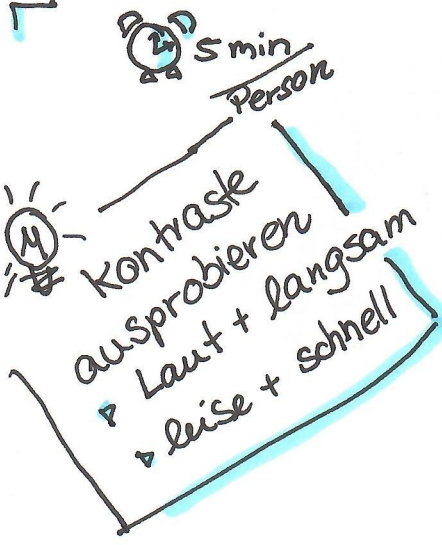 5 min
Person
Kontraste
ausprobieren
Laut + langsam
leise + schnell